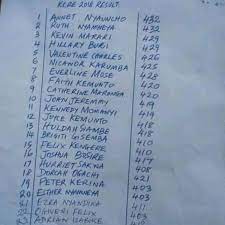 KCPE 2018 RESULT.
1 ANNET NYANUCHO 432
2 RUTH NYAMHEYA 432
3 KEVIN MARARI 430
4 HILLARY BURI 429
5 VALENTINE CHARLES 426
6 NICANOR KARUMBA 425
7 EVERLINE MOSE 421
8 FAITH KEMUNTO 420
9 CATHERINE MARONGA 420
10 JOAN JEREMMY 419
11 KENNEDY MOMANYI 419
12 JOYCE KEMUNTO 418
13 HULDAH SIAMBE 418
14 BRIGITI GISEMBA 410
15 FELIX KENGERE
16 JOSHUA BOSIRE
17 HURRIET SAKWA
18 DORCAH OGACHI
19 PETER KERINA 403
20 ESTHER NYANHEYA 403
21 EZRA NYANDIKA
22 FELIX
23 ADRIAN